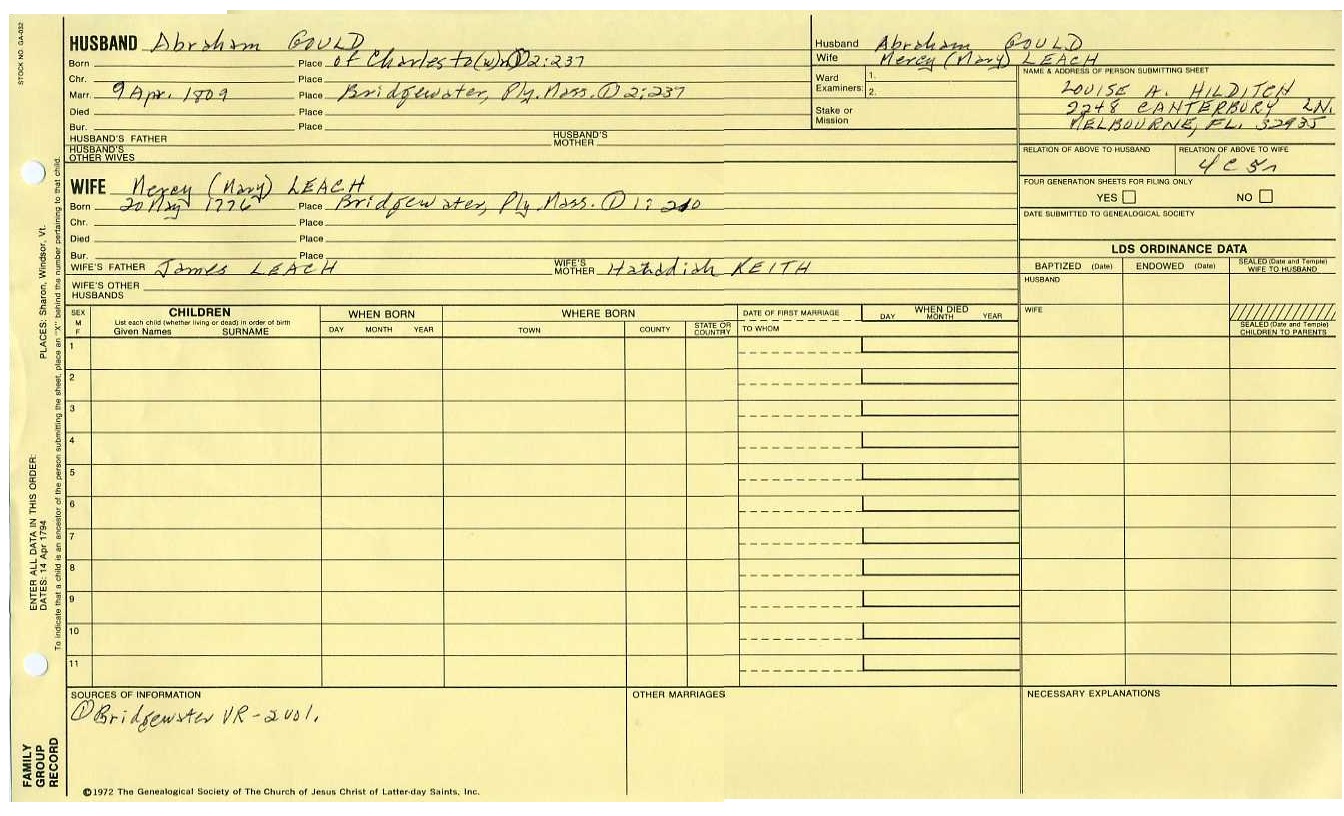 STOCK NO. GA-032
HUSBAND Abraham GOULD
Born Place of Charlesto(w)n ① 2:237
Chr. Place
Marr. 9 Apr. 1809 Place Bridgewater, Ply. Mass. ① 2:237
Died Place
Bur. Place
HUSBAND'S FATHER HUSBAND'S MOTHER
HUSBAND'S OTHER WIVES
Husband Abraham GOULD
Wife Mercy (Mary) LEACH
Ward Examiners: 1.
2.
Stake or Mission
NAME & ADDRESS OF PERSON SUBMITTING SHEET
LOUISE A. HILDITCH
2248 CANTERBURY LN.
MELBOURNE, FL. 32935
RELATION OF ABOVE TO HUSBAND RELATION OF ABOVE TO WIFE
4C5r
FOUR GENERATION SHEETS FOR FILING ONLY
YES NO
DATE SUBMITTED TO GENEALOGICAL SOCIETY
WIFE Mercy (Mary) LEACH
Born 20 May 1776 Place Bridgewater, Ply. Mass. ① 1:210
Chr. Place
Died Place
Bur. Place
WIFE'S FATHER James LEACH WIFE'S MOTHER Hazadiah KEITH
WIFE'S OTHER HUSBANDS
LDS ORDINANCE DATA
BAPTIZED (Date) ENDOWED (Date) SEALED (Date and Temple) WIFE TO HUSBAND
HUSBAND
WIFE
SEALED (Date and Temple) CHILDREN TO PARENTS
SEX M F
CHILDREN
List each child (whether living or dead) in order of birth
Given Names SURNAME
WHEN BORN
DAY MONTH YEAR
WHERE BORN
TOWN COUNTY STATE OR COUNTRY
DATE OF FIRST MARRIAGE
TO WHOM
WHEN DIED
DAY MONTH YEAR
1
2
3
4
5
6
7
8
9
10
11
SOURCES OF INFORMATION
① Bridgewater VR - 2 vol.
OTHER MARRIAGES
NECESSARY EXPLANATIONS
©1972 The Genealogical Society of The Church of Jesus Christ of Latter-day Saints, Inc.
FAMILY GROUP RECORD
ENTER ALL DATA IN THIS ORDER:
DATES: 14 Apr 1794 PLACES: Sharon, Windsor, Vt.
To indicate that a child is an ancestor of the person submitting the sheet, place an "X" behind the number pertaining to that child.